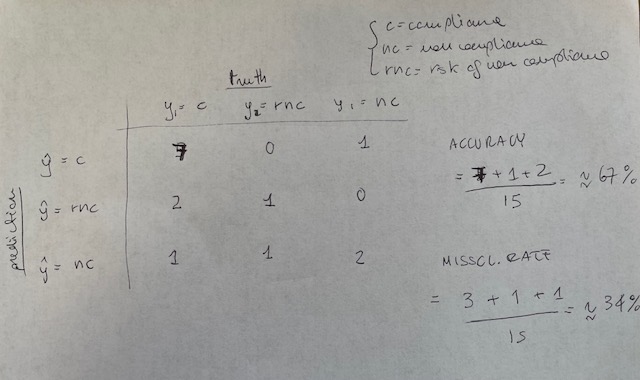 c = compliance
nc = non compliance
rnc = risk of non compliance
truth
y₁ = c y₂ = rnc y₁ = nc
ŷ = c 7 0 1
ŷ = rnc 2 1 0
ŷ = nc 1 1 2
prediction
ACCURACY
= 7 + 1 + 2 / 15 = ≈ 67%
MISSCL. RATE
= 3 + 1 + 1 / 15 = ≈ 34%